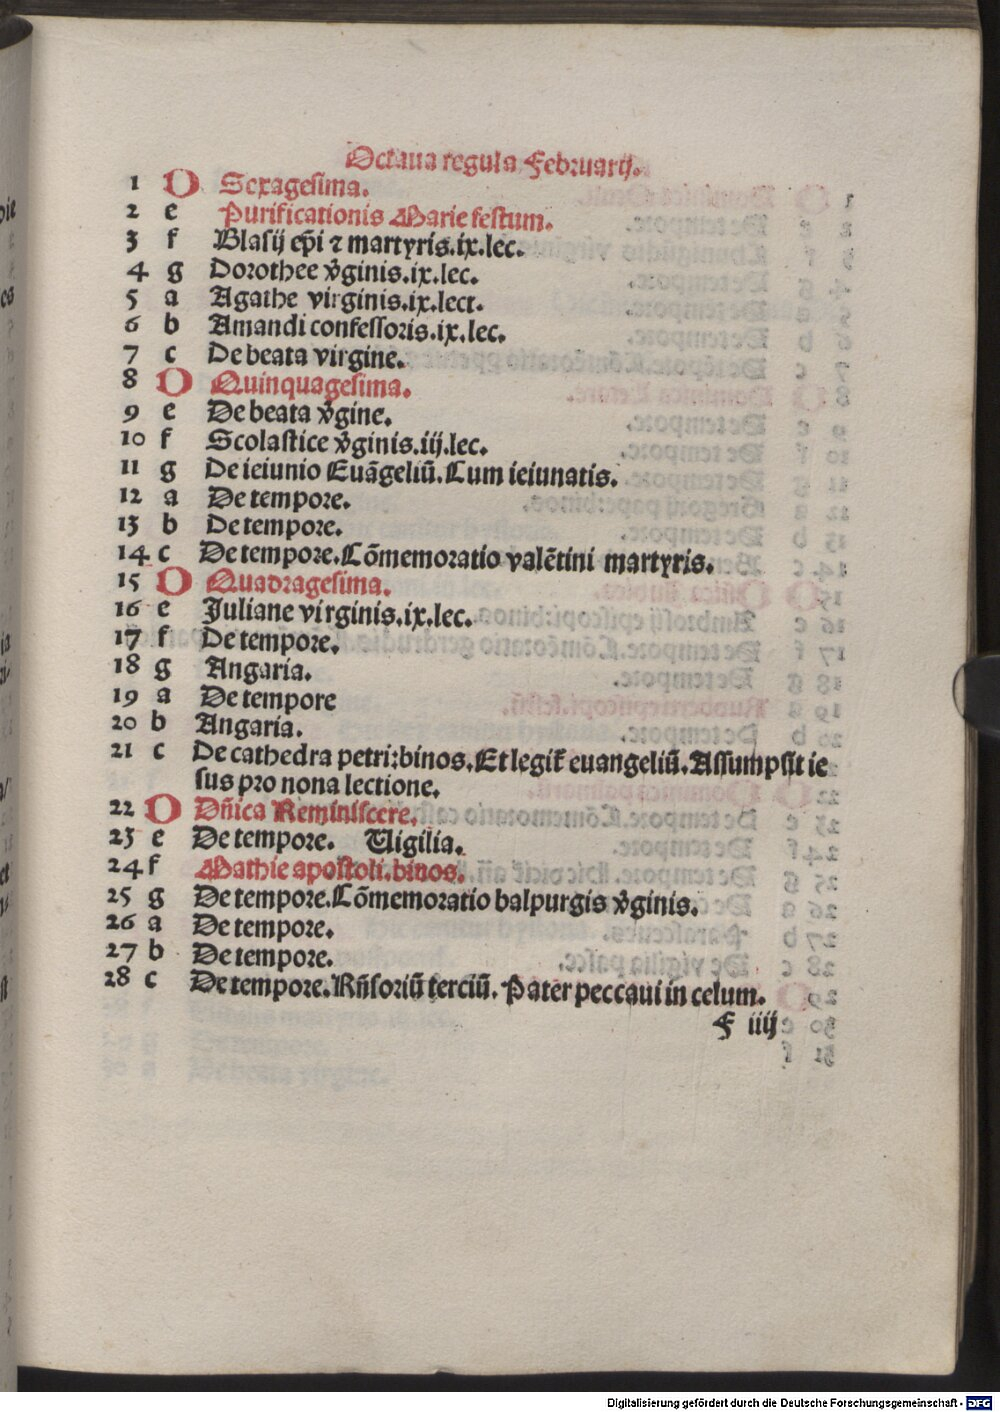 Octaua regula Februarij.
1 D Sexagesima.
2 e Purificationis Marie festum.
3 f Blasij ep̄i ⁊ martyris.ix.lec.
4 g Dorothee v̄ginis.ix.lec.
5 a Agathe virginis.ix.lect.
6 b Amandi confessoris.ix.lec.
7 c De beata virgine.
8 D Quinquagesima.
9 e De beata v̄gine.
10 f Scolastice v̄ginis.iij.lec.
11 g De ieiunio Euāgeliū.Cum ieiunatis.
12 a De tempore.
13 b De tempore.
14 c De tempore.Cōmemoratio valētini martyris.
15 D Quadragesima.
16 e Juliane virginis.ix.lec.
17 f De tempore.
18 g Angaria.
19 a De tempore
20 b Angaria.
21 c De cathedra petri:binos.Et legit̄ euangeliū.Assumpsit ie
sus pro nona lectione.
22 D Dn̄ica Reminiscere.
23 e De tempore. Uigilia.
24 f Mathie apostoli.binos.
25 g De tempore.Cōmemoratio balpurgis v̄ginis.
26 a De tempore.
27 b De tempore.
28 c De tempore.Rn̄soriū terciū.Pater peccaui in celum.
F iiij
Digitalisierung gefördert durch die Deutsche Forschungsgemeinschaft - DFG